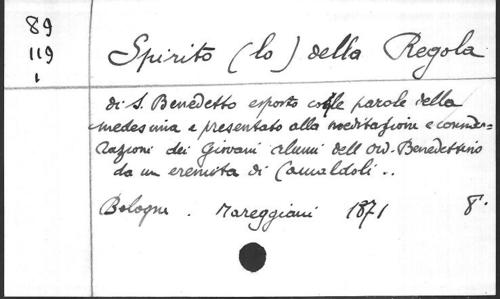 89
119
1
Spirito (lo) della Regola
di S. Benedetto esposto colle parole della
medesima e presentato alla meditazione e conside-
razioni dei Giovani alunni dell'Ord. Benedettino
da un eremita di Camaldoli..
Bologna. Mareggiani 1871 8°